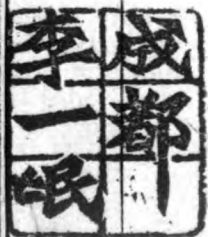 成都
李一氓